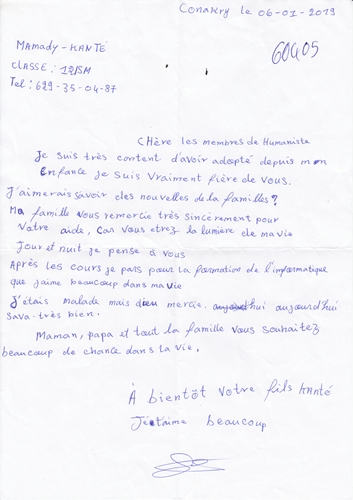 Conakry le 06-01-2019
Mamady-KANTÉ
60405
CLASSE: 12/SM
Tel: 629-35-04-87
CHère les membres de Humaniste
Je suis très content d'avoir adopté depuis mon
Enfance je suis vraiment fière de vous.
J'aimerais savoir des nouvelles de la familles?
Ma famille vous remercie très sincèrement pour
Votre aide, Car vous etrez la lumière de ma vie
Jour et nuit je pense à vous
Après les cours je pars pour la formation de l'informatique
que j'aime beaucoup dans ma vie
J'étais malade mais dieu mercie. aujourd'hui
sava-très bien.
Maman, papa et tout la famille vous souhaitez
beaucoup de chance dans ta vie.
À bientôt votre fils KANTÉ
Je t'aime beaucoup